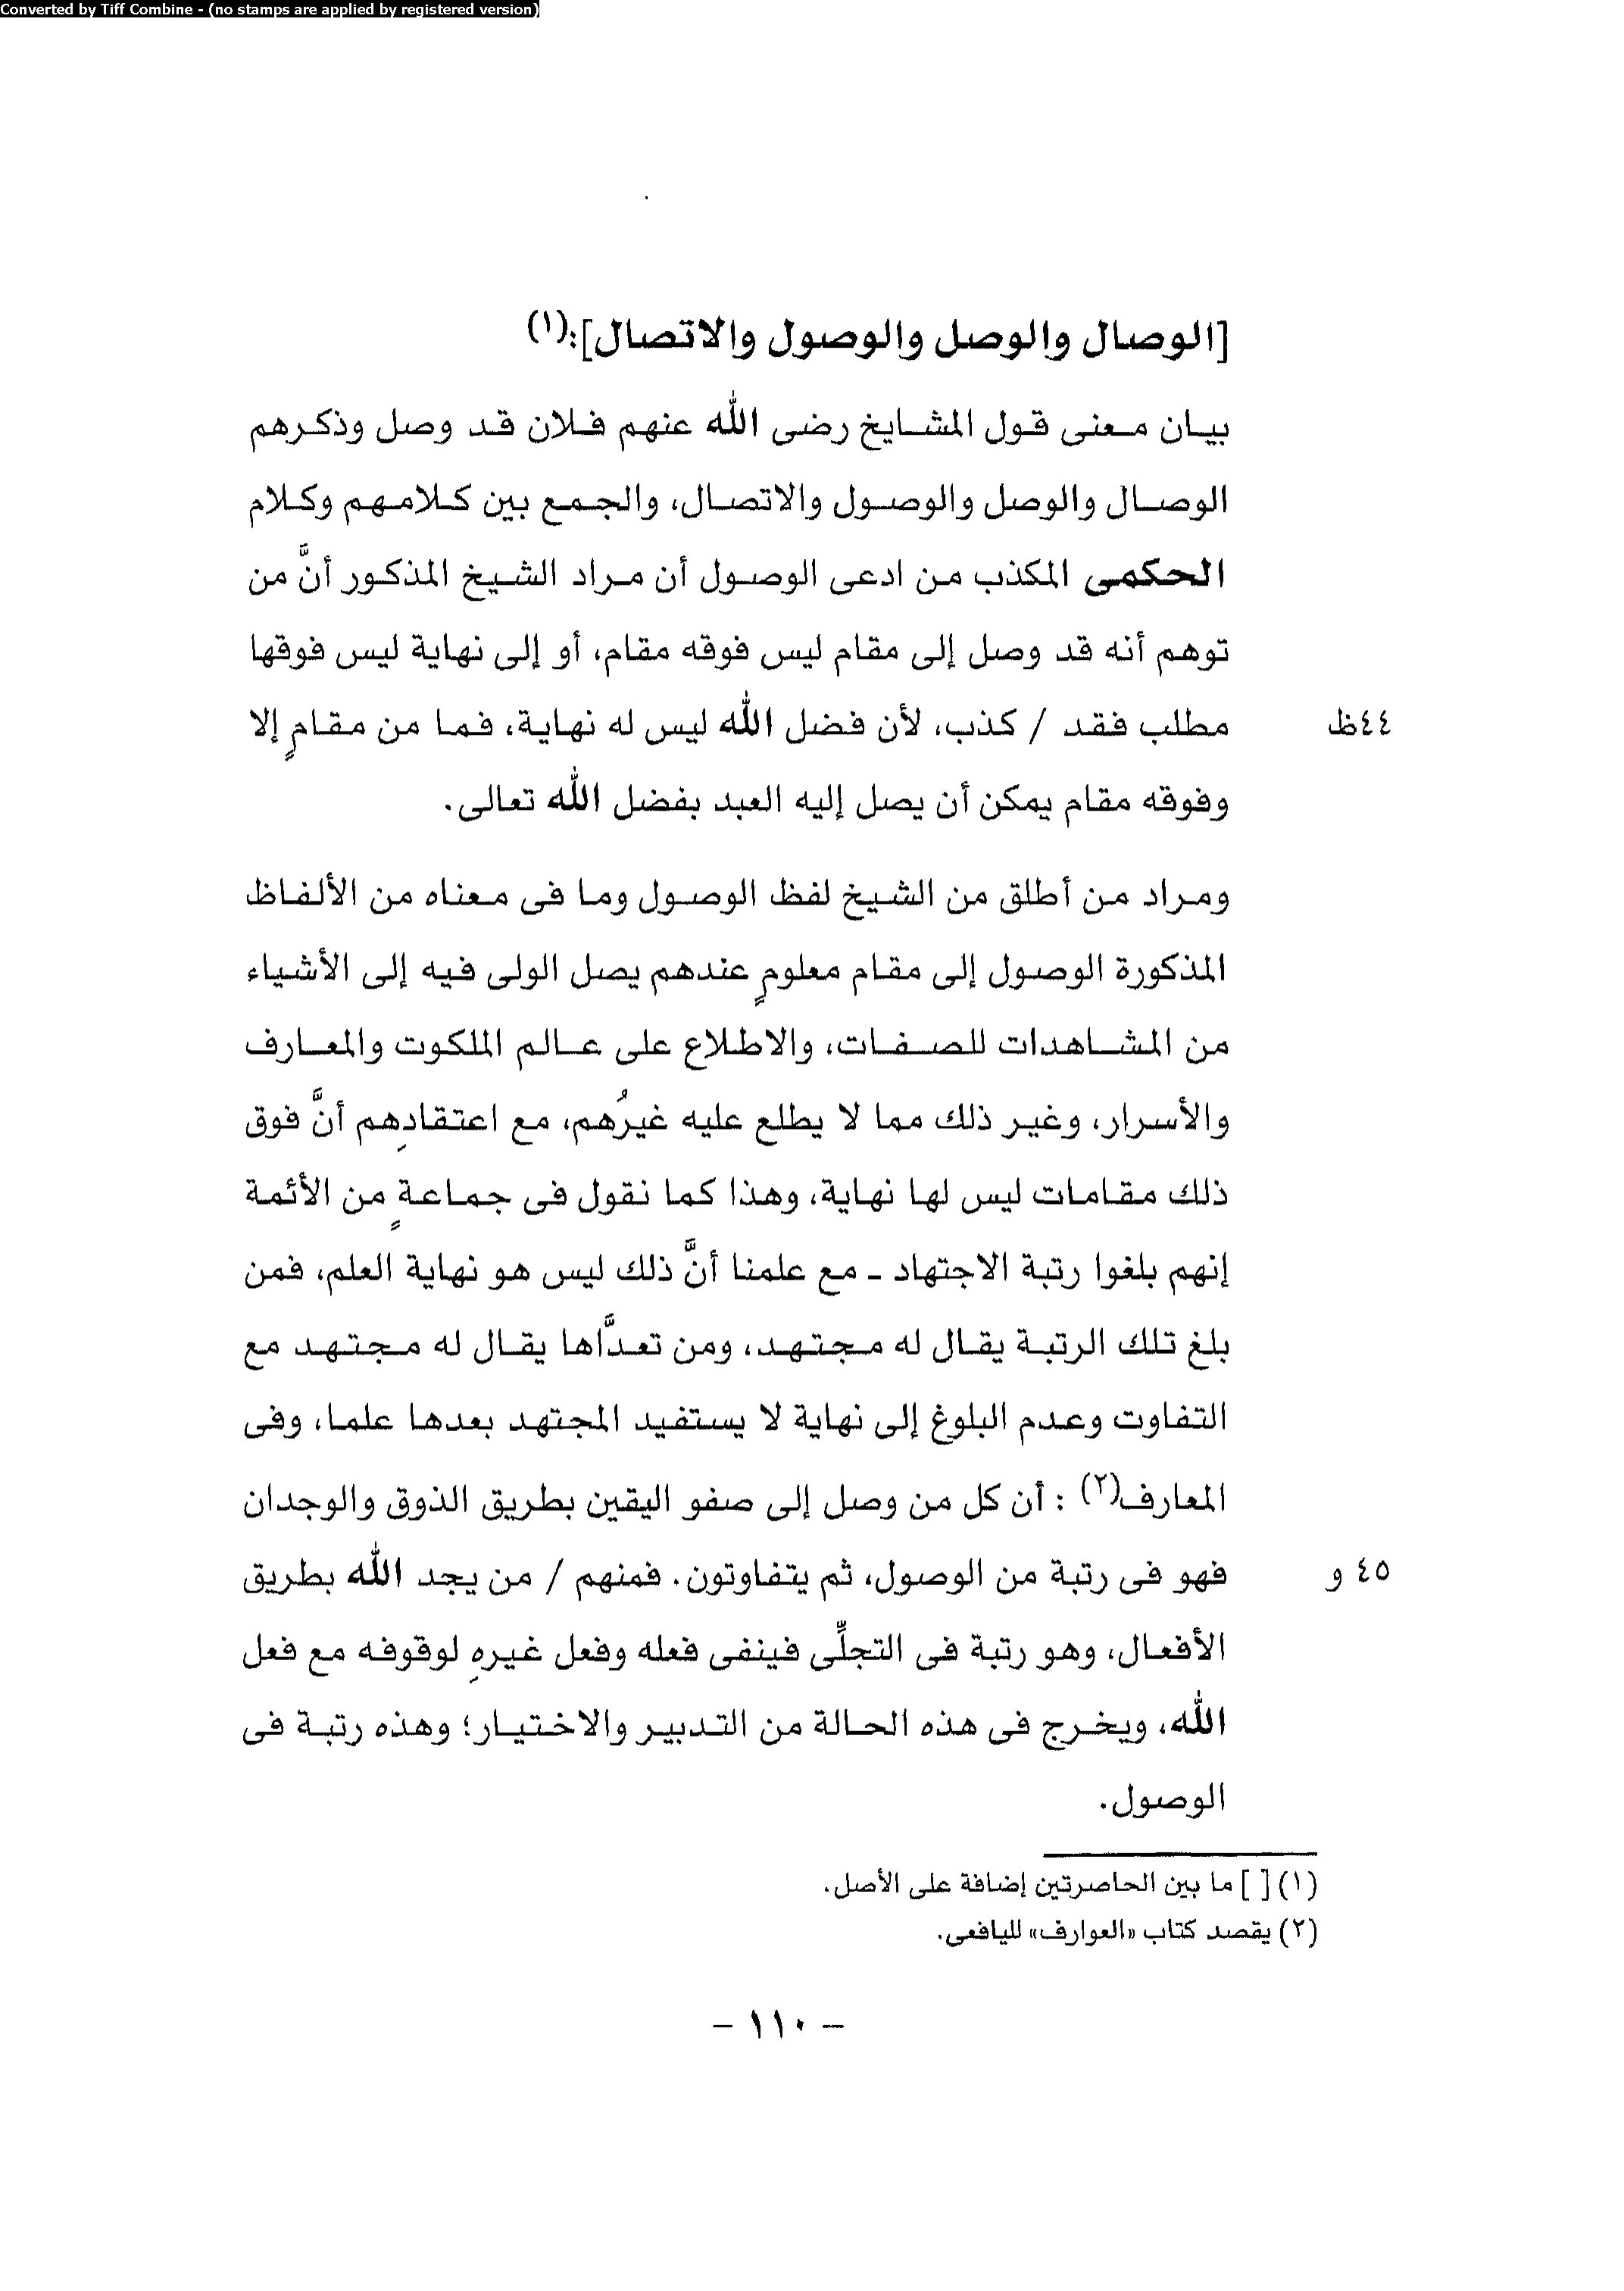 Converted by Tiff Combine - (no stamps are applied by registered version)
[الوصال والوصل والوصول والاتصال]:(١)
بيان معنى قول المشايخ رضى الله عنهم فلان قد وصل وذكرهم
الوصال والوصل والوصول والاتصال، والجمع بين كلامهم وكلام
الحكمى المكذب من ادعى الوصول أن مراد الشيخ المذكور أنَّ من
توهم أنه قد وصل إلى مقام ليس فوقه مقام، أو إلى نهاية ليس فوقها
مطلب فقد / كذب، لأن فضل الله ليس له نهاية، فما من مقامٍ إلا
٤٤ظ
وفوقه مقام يمكن أن يصل إليه العبد بفضل الله تعالى.
ومراد من أطلق من الشيخ لفظ الوصول وما فى معناه من الألفاظ
المذكورة الوصول إلى مقام معلومٍ عندهم يصل الولى فيه إلى الأشياء
من المشاهدات للصفات، والاطلاع على عالم الملكوت والمعارف
والأسرار، وغير ذلك مما لا يطلع عليه غيرُهم، مع اعتقادِهم أنَّ فوق
ذلك مقامات ليس لها نهاية، وهذا كما نقول فى جماعةٍ من الأئمة
إنهم بلغوا رتبة الاجتهاد - مع علمنا أنَّ ذلك ليس هو نهاية العلم، فمن
بلغ تلك الرتبة يقال له مجتهد، ومن تعدَّاها يقال له مجتهد مع
التفاوت وعدم البلوغ إلى نهاية لا يستفيد المجتهد بعدها علما، وفى
المعارف(٢) : أن كل من وصل إلى صفو اليقين بطريق الذوق والوجدان
فهو فى رتبة من الوصول، ثم يتفاوتون. فمنهم / من يجد الله بطريق
٤٥ و
الأفعال، وهو رتبة فى التجلِّى فينفى فعله وفعل غيرِه لوقوفه مع فعل
الله، ويخرج فى هذه الحالة من التدبير والاختيار؛ وهذه رتبة فى
الوصول.
(١) [ ] ما بين الحاصرتين إضافة على الأصل.
(٢) يقصد كتاب «العوارف» لليافعى.
- ١١٠ -